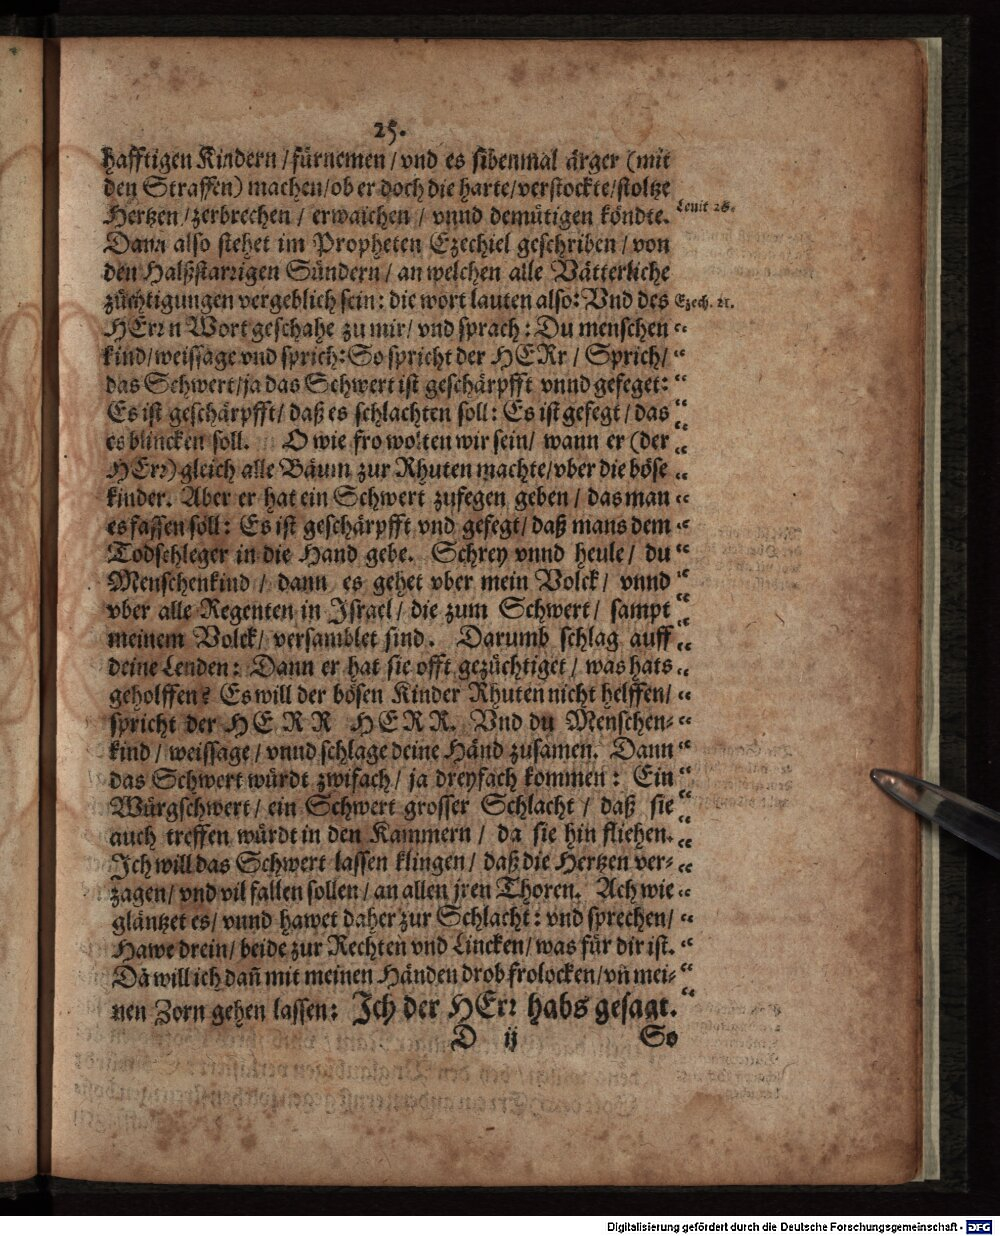 25.
hafftigen Kindern / fürnemen / vnd es sibenmal ärger (mit
den Straffen) machen / ob er doch die harte / verstockte / stoltze
Hertzen / zerbrechen / erwaichen / vnnd demütigen köndte. Leuit 26.
Dann also stehet im Propheten Ezechiel geschriben / von
den Halßstarrigen Sündern / an welchen alle Vätterliche
züchtigungen vergeblich sein: die wort lauten also: Vnd des Ezech. 21.
HErrn Wort geschahe zu mir / vnd sprach: Du menschen "
kind / weissage vnd sprich: So spricht der HERr / Sprich / "
das Schwert / ja das Schwert ist geschärpfft vnnd gefeget: "
Es ist geschärpfft / daß es schlachten soll: Es ist gefegt / das "
es blincken soll. O wie fro wolten wir sein / wann er (der "
HErr) gleich alle Bäum zur Rhuten machte / vber die böse "
kinder. Aber er hat ein Schwert zufegen geben / das man "
es fassen soll: Es ist geschärpfft vnd gefegt / daß mans dem "
Todschleger in die Hand gebe. Schrey vnnd heule / du "
Menschenkind / dann es gehet vber mein Volck / vnnd "
vber alle Regenten in Israel / die zum Schwert / sampt "
meinem Volck / versamblet sind. Darumb schlag auff "
deine Lenden: Dann er hat sie offt gezüchtiget / was hats "
geholffen? Es will der bösen Kinder Rhuten nicht helffen / "
spricht der HERR HERR. Vnd du Menschen- "
kind / weissage / vnnd schlage deine Händ zusamen. Dann "
das Schwert würdt zwifach / ja dreyfach kommen: Ein "
Würgschwert / ein Schwert grosser Schlacht / daß sie "
auch treffen würdt in den Kammern / da sie hin fliehen. "
Ich will das Schwert lassen klingen / daß die Hertzen ver- "
zagen / vnd vil fallen sollen / an allen jren Thoren. Ach wie "
gläntzet es / vnnd hawet daher zur Schlacht: vnd sprechen / "
Hawe drein / beide zur Rechten vnd Lincken / was für dir ist. "
Dā will ich dañ mit meinen Händen drob frolocken / vñ mei- "
nen Zorn gehen lassen: Ich der HErr habs gesagt. "
D ij So
Digitalisierung gefördert durch die Deutsche Forschungsgemeinschaft - DFG